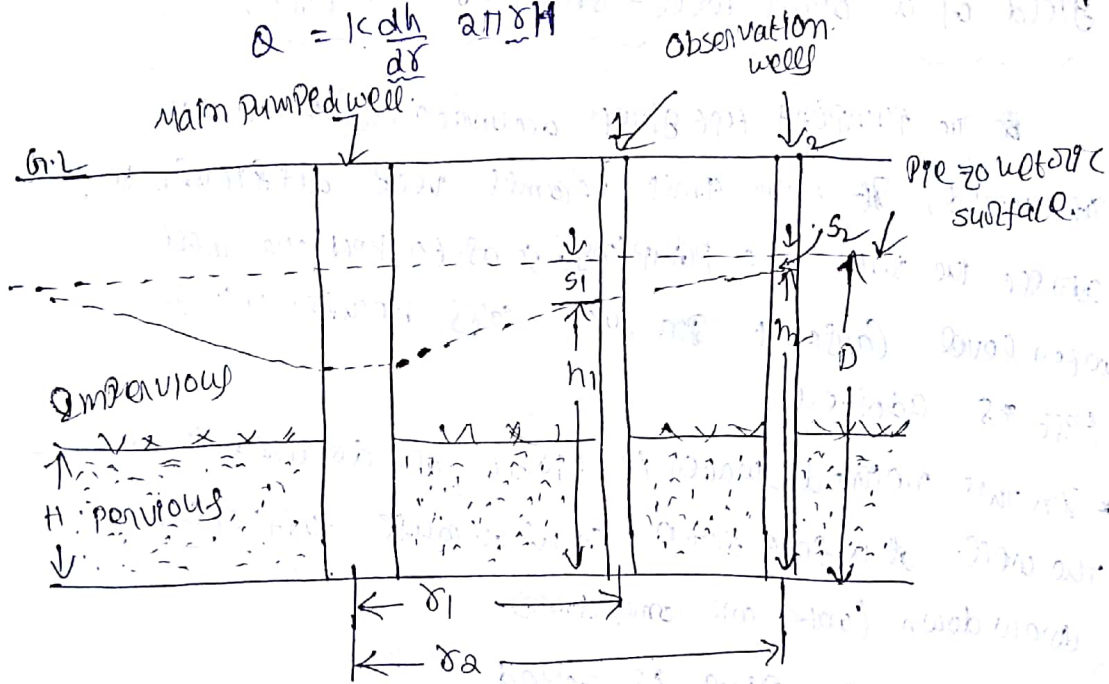 Q = K dh/dr 2πrH
Observation
wells
Main pumped well.
1
2
G.L
Piezometric
surface.
S2
S1
h1
h2
D
Impervious
H
pervious
r1
r2